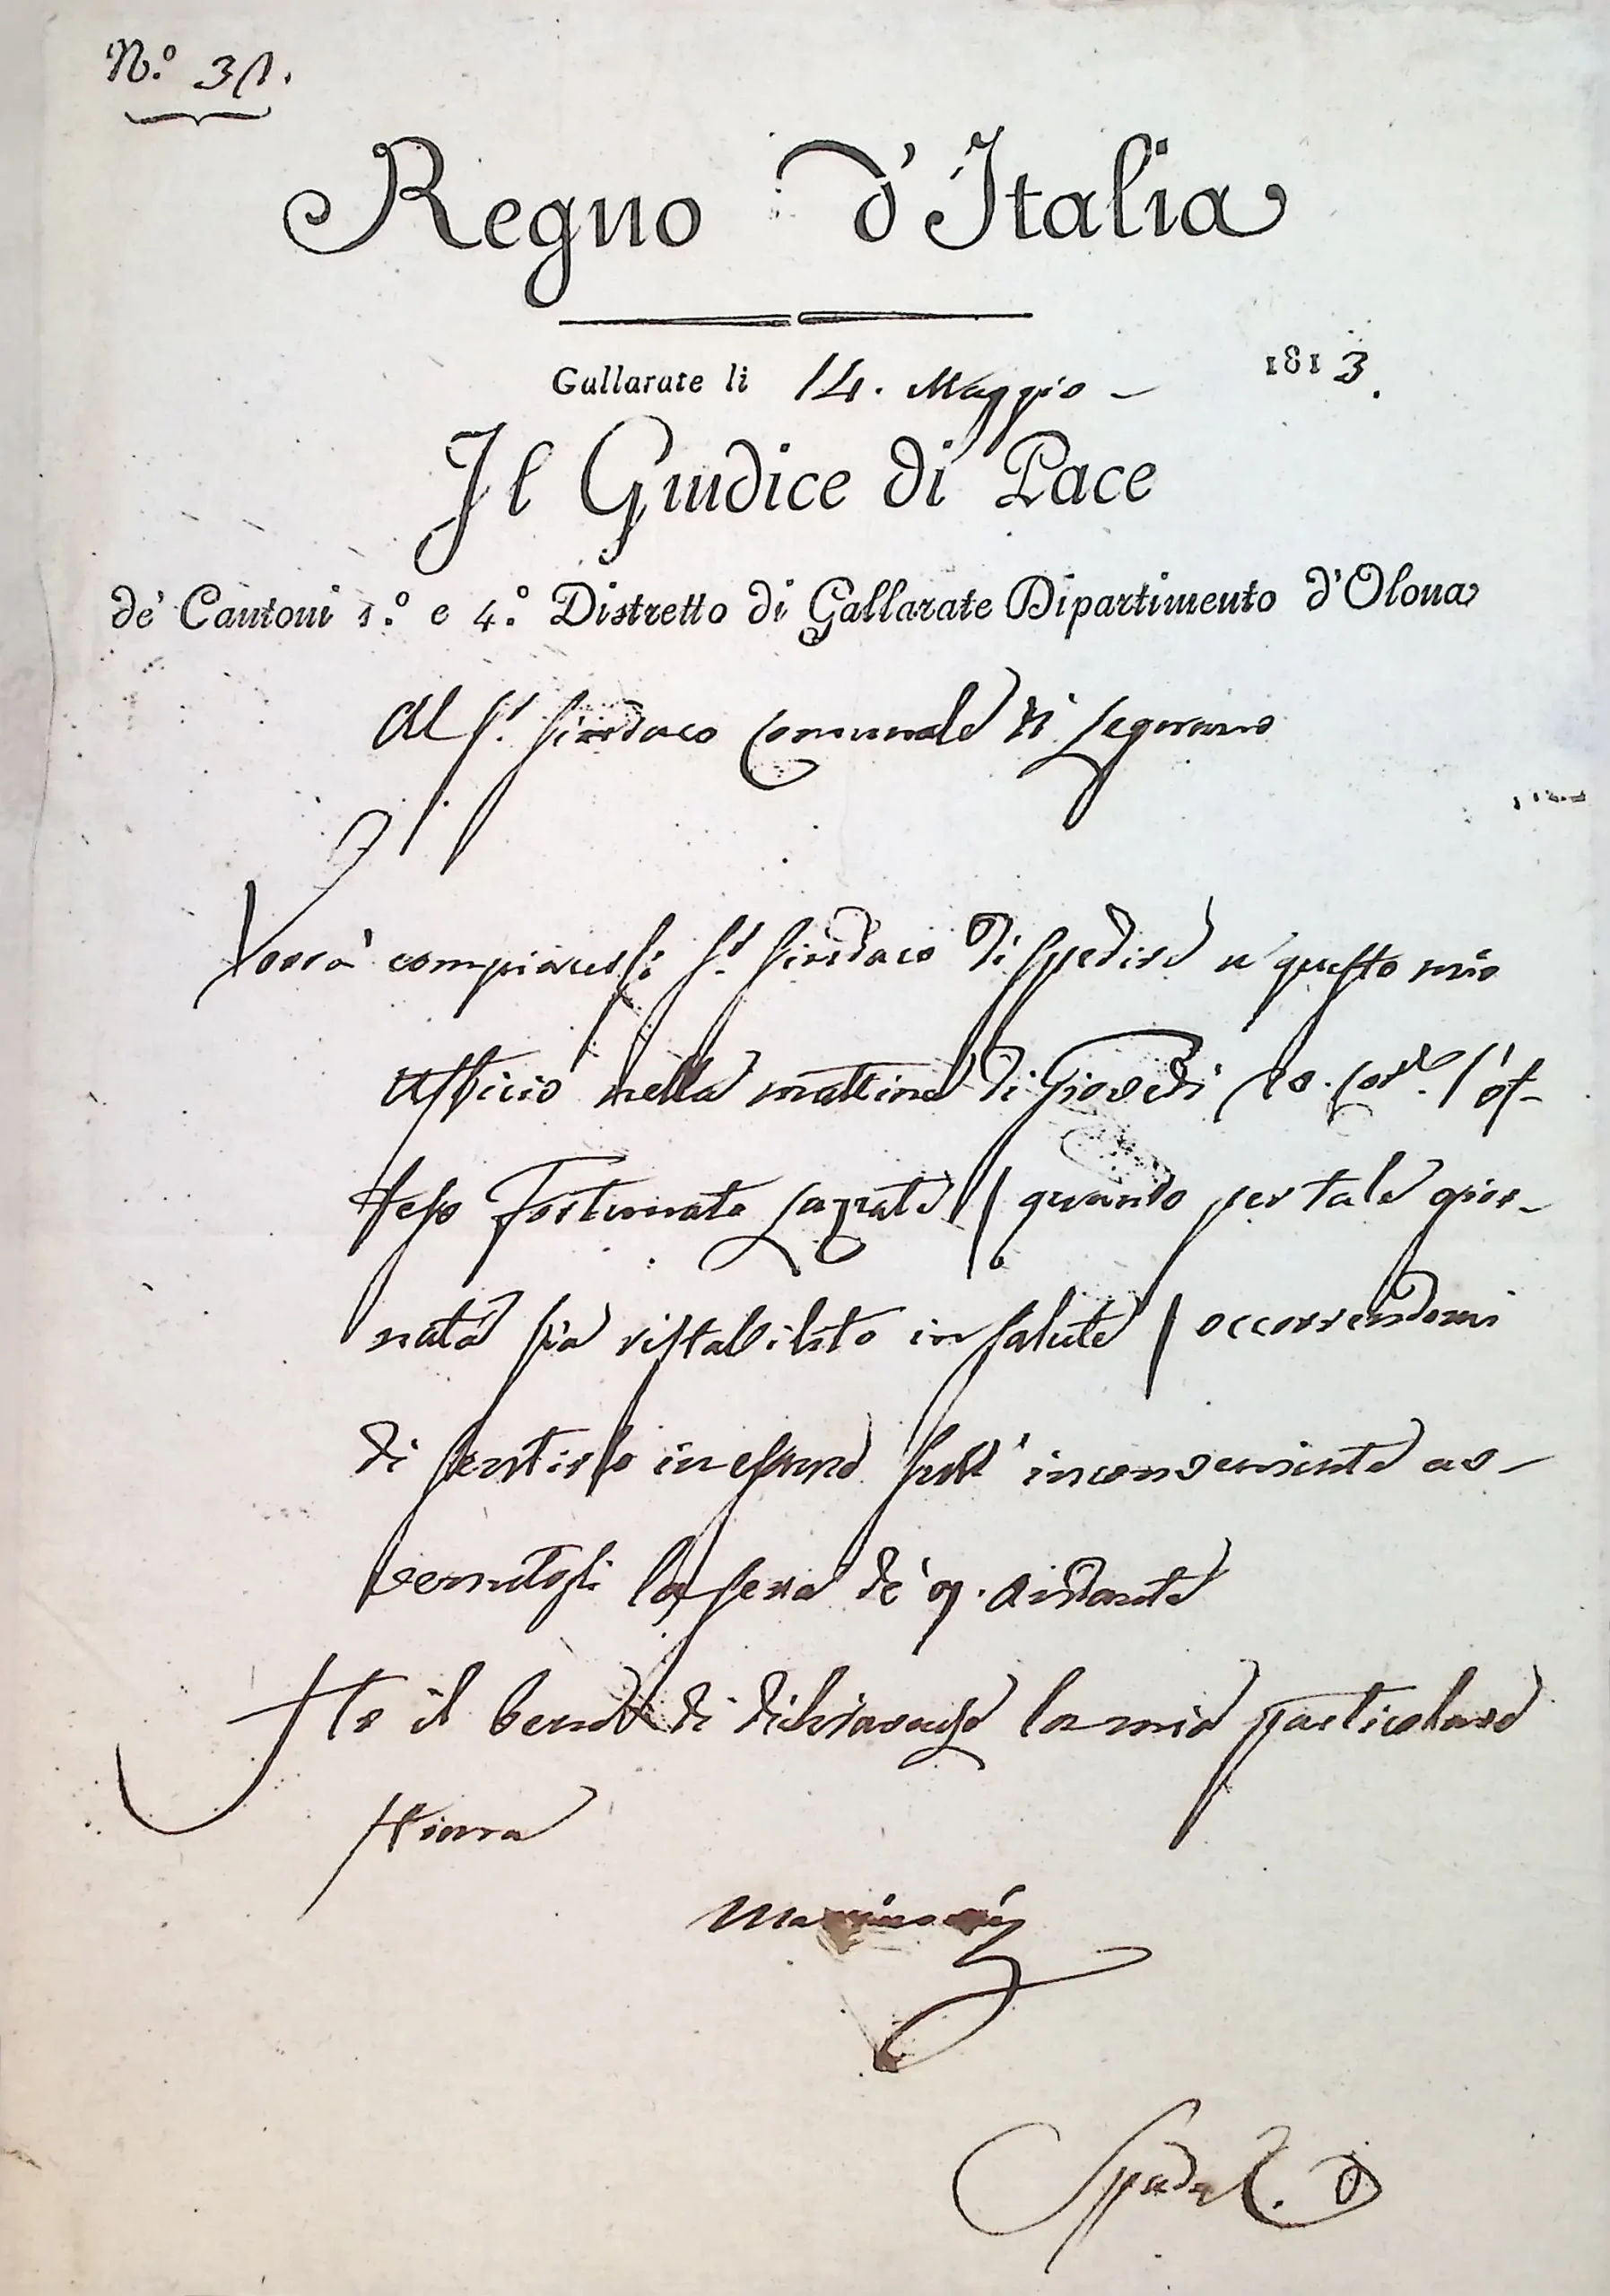 N.° 31.
Regno d'Italia
Gallarate li 14. Maggio 1813.
Il Giudice di Pace
de' Cantoni 1.° e 4.° Distretto di Gallarate Dipartimento d'Olona
Al S.r Sindaco Comunale di Legnano
Vorrà compiacersi S.r Sindaco di spedire a questo mio
Ufficio nella mattina di Giovedì 20. Corr.e l'of-
feso Fortunato Lazzate / quando per tale gior-
nata sia ristabilito in salute / occorrendomi
di sentirlo in esame sull'inconveniente av-
venutogli la sera de' 9. andante
Ho il bene di dichiararle la mia particolare
stima
Spada C.